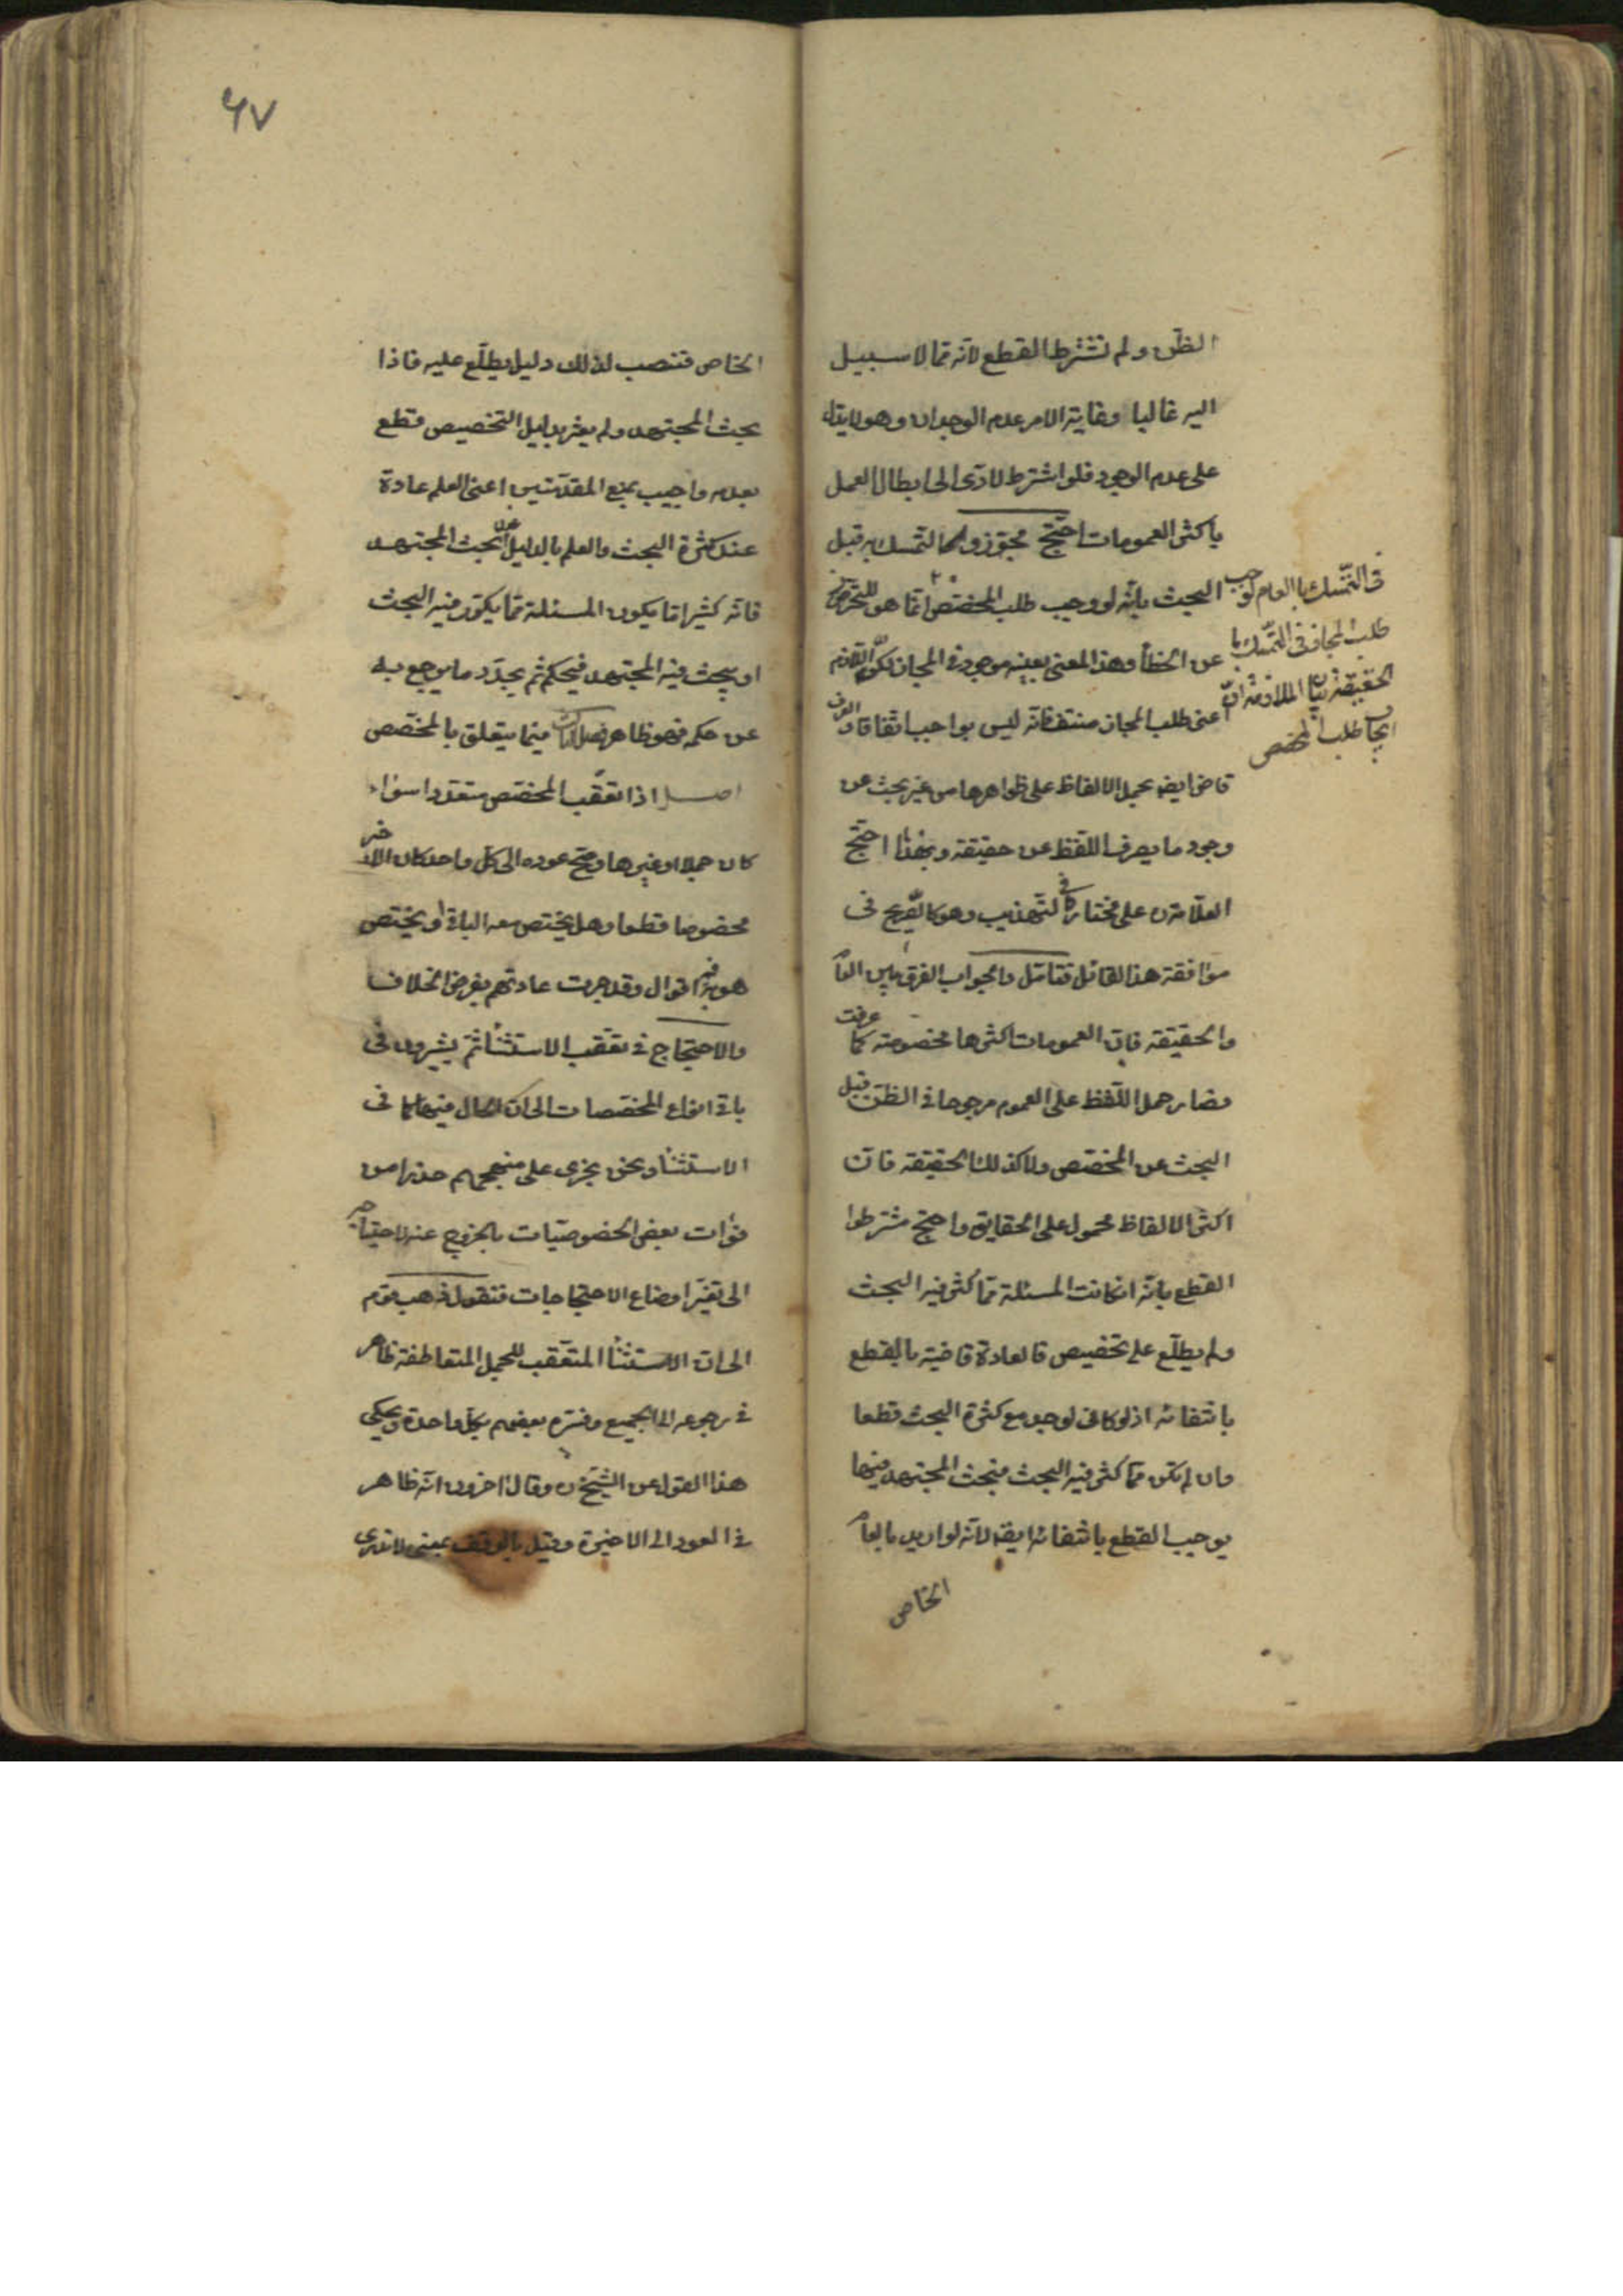 الظن ولم نشترط القطع لانه مما لا سبيل
اليه غالبا وغاية الامر عدم الوجدان وهو لا يدل
على عدم الوجود فلو اشترط لادى الى ابطال العمل
باكثر العمومات احتج مجوزوا التمسك به قبل
البحث بانه لو وجب طلب المخصص
في التمسك بالعام لوجب
طلب المجاز في التمسك با
لحقيقة بيان الملازمة ان
ايجاب طلب المخصص
انما هو للتحرز
عن الخطأ وهذا المعنى بعينه موجود في المجاز لكن اللازم
اعنى طلب المجاز منتف فانه ليس بواجب اتفاقا والعرف
قاض ايضه بحمل الالفاظ على ظواهرها من غير بحث عن
وجود ما يصرف اللفظ عن حقيقته وبهذا احتج
العلامة ره على مختاره في التهذيب وهو كالصريح في
موافقة هذا القائل فتامل والجواب الفرق بين العام
والحقيقة فان العمومات اكثرها مخصوصة كما عرفت
فصار حمل اللفظ على العموم مرجوحا في الظن قبل
البحث عن المخصص ولا كذلك الحقيقة فان
اكثر الالفاظ محمول على الحقايق واحتج مشترطوا
القطع بانه ان كانت المسئلة مما كثر فيه البحث
ولم يطلع على تخصيص فالعادة قاضية بالقطع
بانتفائه اذ لو كان لوجد مع كثرة البحث قطعا
وان لم تكن مما كثر فيه البحث فبحث المجتهد فيها
يوجب القطع بانتفائه ايضه لانه لو اريد بالعام
الخاص
٤٧
الخاص فنصب لذلك دليل يطلع عليه فاذا
بحث المجتهد ولم يعثر بدليل التخصيص قطع
بعدمه واجيب بمنع المقدمتين اعنى العلم عادة
عند كثرة البحث والعلم بالدليل عند بحث المجتهد
فانه كثيرا ما يكون المسئلة مما يكرر فيه البحث
او يبحث فيه المجتهد فيحكم ثم يجد ما يرجع به
عن حكمه فهو ظاهر فيما يتعلق بالمخصص
اصل اذا تعقب المخصص متعددا سواء
كان جملا او غيرها وصح عوده الى كل واحد كان الاخير
مخصوصا قطعا وهل يختص معه الباقي او يختص
هو به فيه اقوال وقد جرت عادتهم بفرض الخلاف
والاحتجاج في تعقب الاستثناء ثم يشيرون في
باقي انواع المخصصات الى ان الحال فيها كما في
الاستثناء ونحن نجرى على منهجهم حذرا من
فوات بعض الخصوصيات بالخروج عنه لاحتياجه
الى تغير اوضاع الاحتجاجات فنقول ذهب قوم
الى ان الاستثناء المتعقب للجمل المتعاطفة ظاهر
في رجوعه الى الجميع وفسره بعضهم بكل واحدة ويحكى
هذا القول عن الشيخ ره وقال اخرون انه ظاهر
في العود الى الاخيرة وقيل بالوقف بمعنى لا ندرى